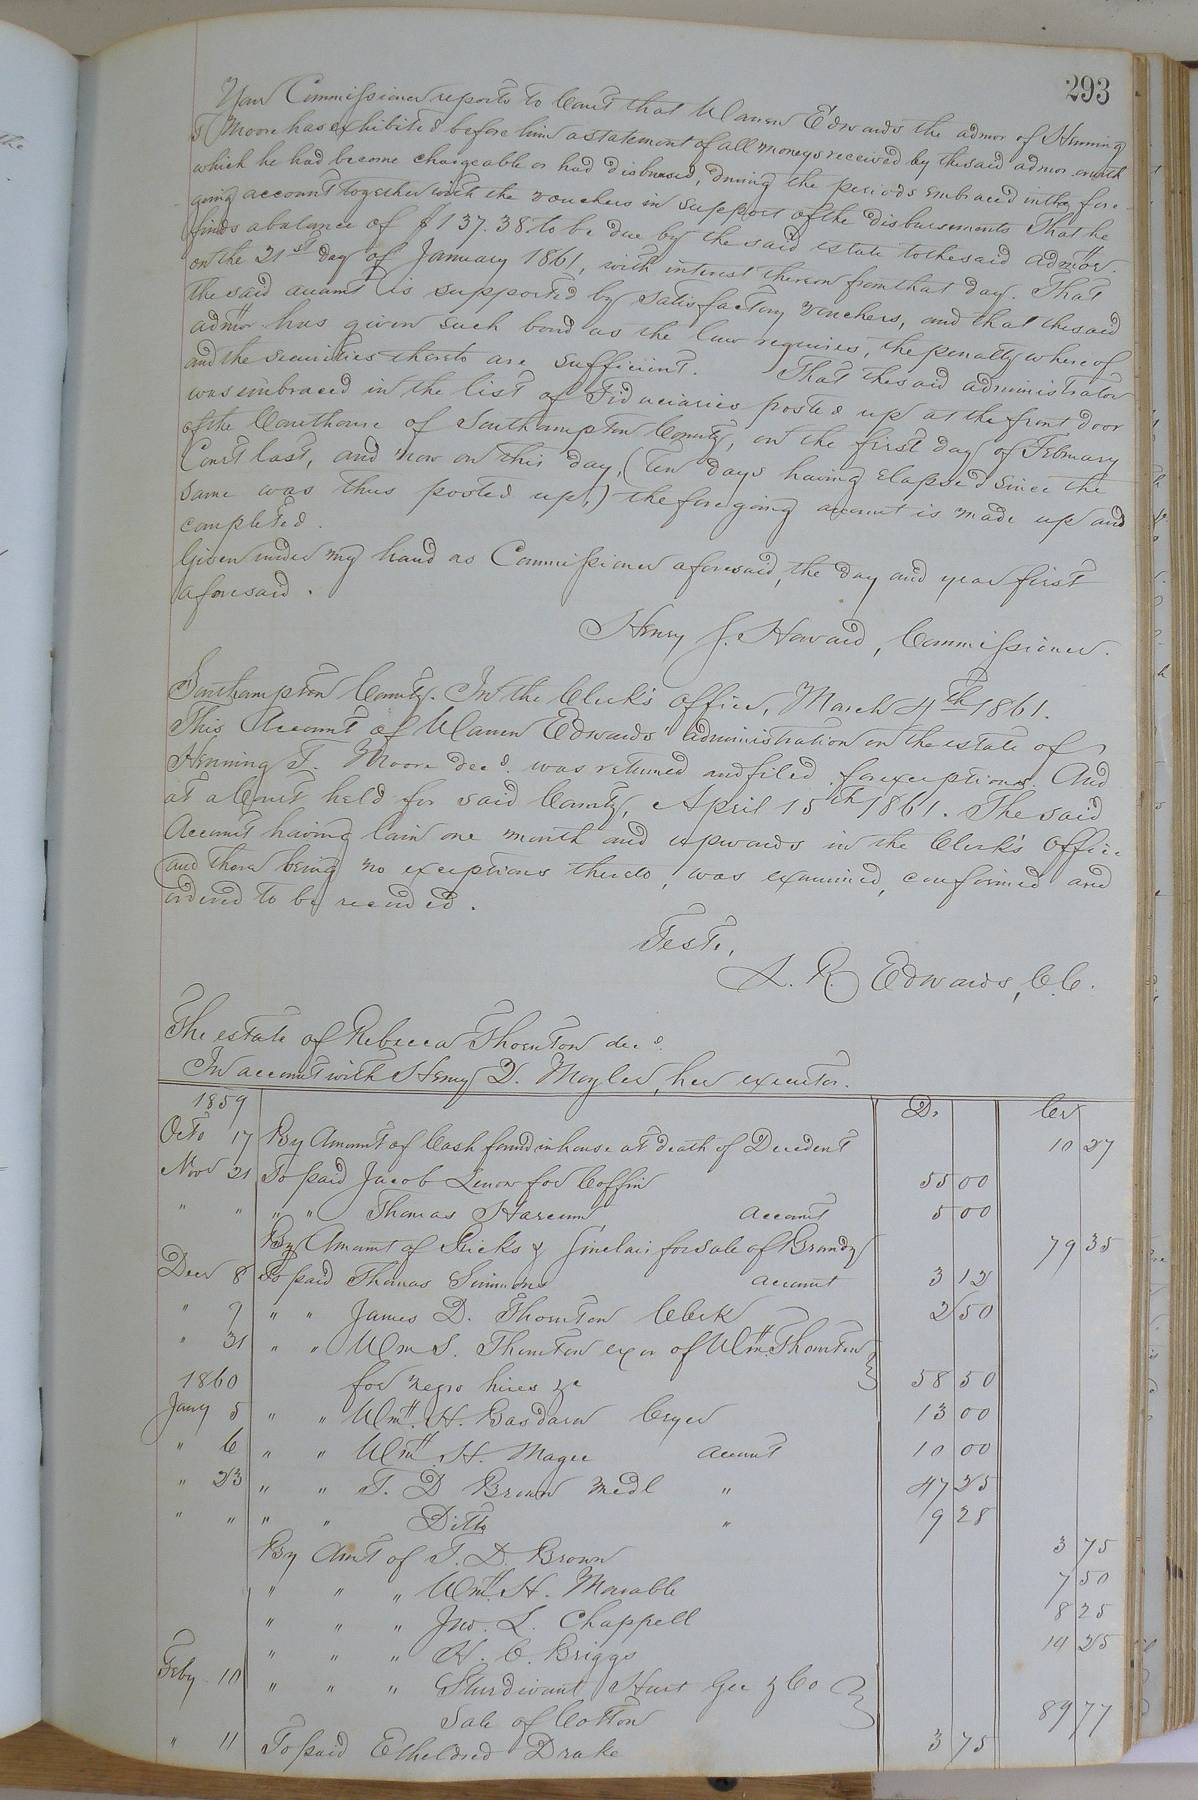 293
Your Commissioner reports to Court that Warren Edwards the admor of Henning
T Moore has exhibited before him a statement of all moneys received by the said admor or with
which he had become chargeable or had disbursed, during the periods embraced in the fore-
going account together with the vouchers in support of the disbursements That he
finds a balance of $137.38 to be due by the said estate to the said admor.
on the 21st day of January 1861, with interest thereon from that day. That
the said account is supported by satisfactory vouchers, and that the said
admor has given such bond as the law requires, the penalty whereof
and the securities thereto are sufficient. That the said administrator
was embraced in the list of Fiduciaries posted up at the front door
of the Courthouse of Southampton County, on the first day of February
Court last, and now on this day, (Ten days having elapsed since the
same was thus posted up,) the foregoing account is made up and
completed.
Given under my hand as Commissioner aforesaid, the day and year first
aforesaid.
Henry J. Howard, Commissioner.
Southampton County. In the Clerk's office, March 4th 1861.
This Account of Warren Edwards administration on the estate of
Henning T. Moore decd. was returned and filed for exceptions. And
at a Court held for said County, April 15th 1861. The said
Account having lain one month and upwards in the Clerk's office
and there being no exceptions thereto, was examined, confirmed and
ordered to be recorded.
Teste,
L. R. Edwards, C.C.
The estate of Rebecca Thornton decd.
In account with Henry D. Moyler, her executor.
1859 Dr Cr
Octo 17 By Amount of Cash found in house at death of Decedent 10 27
Nov 21 To paid Jacob Lenow for Coffin 55 00
" " " " Thomas Harcum account 5 00
By Amount of Ricks & Sinclair for sale of Brandy 79 35
Decr 8 To paid Thomas Simmons account 3 12
" 9 " " James D. Thornton Clerk 2 50
" 31 " " Wm S. Thornton exor of Wm Thornton
1860 for negro hires &c 58 50
Jany 5 " " Wm. H. Cryer 13 00
" 6 " " Wm. H. Magee account 10 00
" 23 " " T. D Brown Medl " 47 25
" " " " Ditto " 9 28
By Amt of T. D. Brown 3 75
" " " Wm H. Marable 7 50
" " " Jno. L. Chappell 8 25
" " " H. C. Briggs 14 25
Feby 10 " " " Sturdivant Hurt Gee & Co
Sale of Cotton 89 77
" 11 To paid Etheldred Drake 3 75